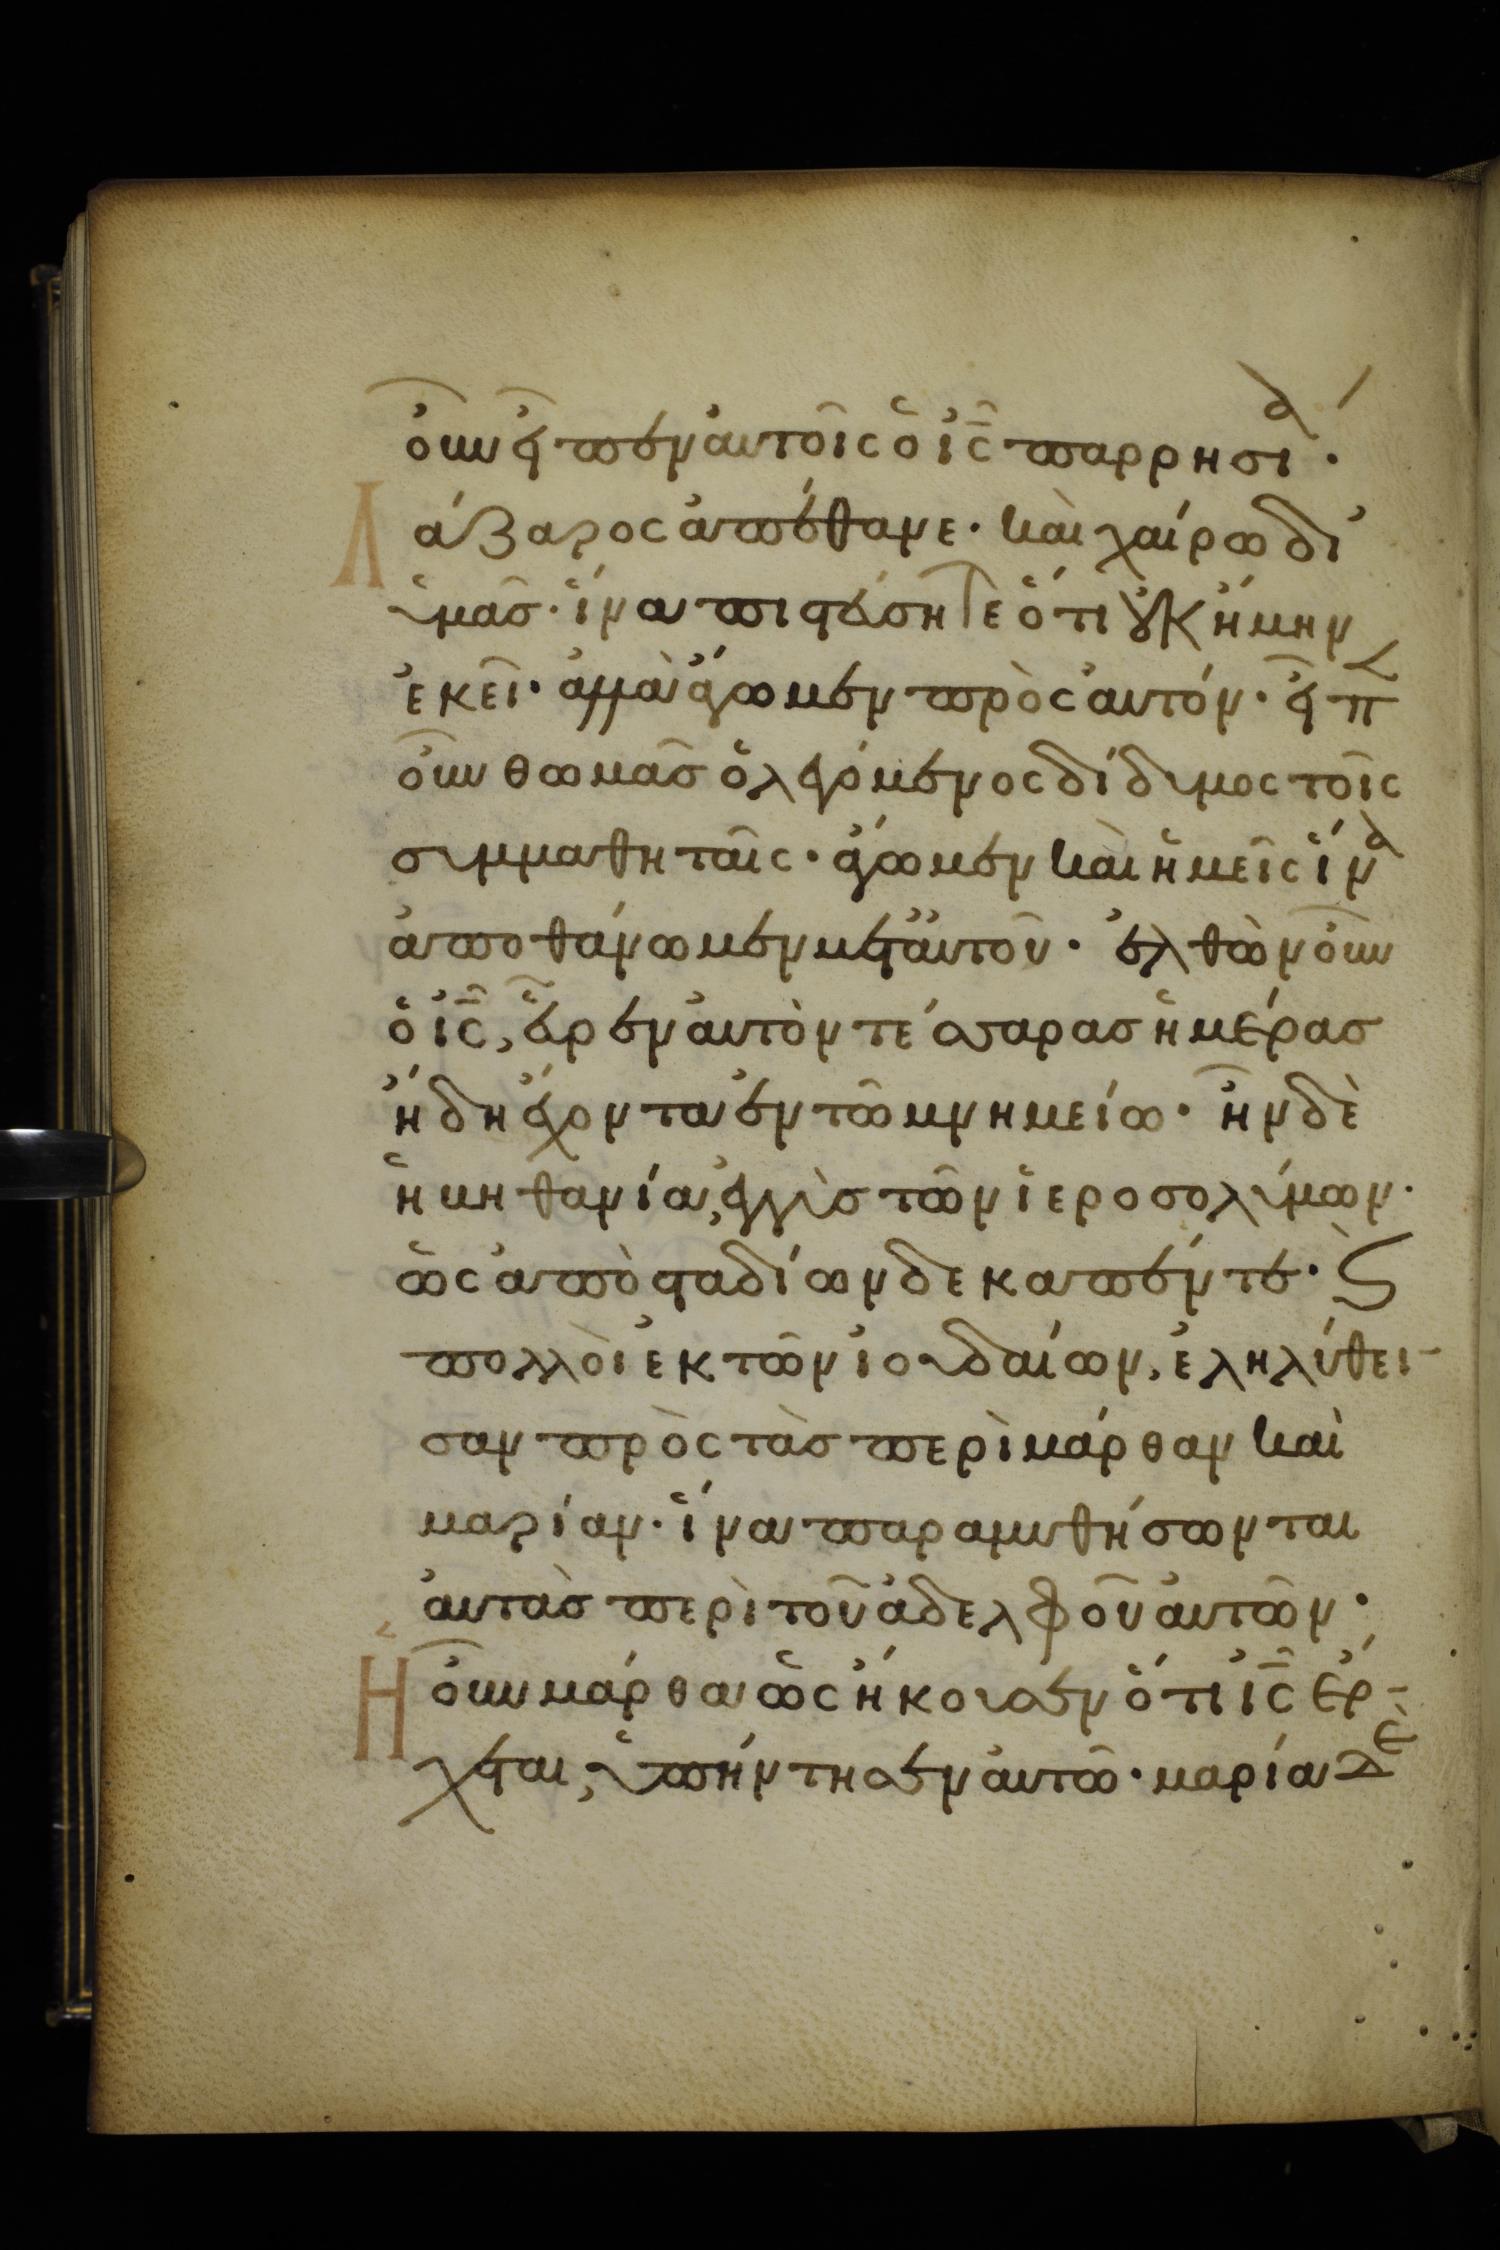 οὖν εἶπεν αὐτοῖς ὁ ἰς̅ παρρησίᾳ·
Λάζαρος ἀπέθανε· καὶ χαίρω δι
ὑμᾶσ· ἵνα πιστεύσητε ὅτι οὐκ ἤμην
ἐκεῖ· ἀλλὰ ἄγωμεν πρὸς αὐτόν· εἶπ
οὖν θωμᾶσ ὁ λεγόμενος δίδυμος τοῖς
συμμαθηταῖς· ἄγωμεν καὶ ἡμεῖς ἵνὰ
ἀποθάνωμεν μετ' αὐτοῦ· ἐλθὼν οὖν
ὁ ἰς̅, εὗρεν αὐτὸν τέσσαρασ ἡμέρασ
ἤδη ἔχοντα ἐν τῶ μνημείω· ἦν δὲ
ἡ βηθανία, ἐγγὺσ τῶν ἱεροσολύμων·
ὡς ἀπὸ σταδίων δεκαπέντε· Ϛ̀
πολλοὶ ἐκ τῶν ἰουδαίων, ἐληλύθει-
σαν πρὸς τὰσ περὶ μάρθαν καὶ
μαρίαν· ἵνα παραμυθήσωνται
αὐτὰσ περὶ τοῦ ἀδελφοῦ αὐτῶν·
Ἡ οὖν μάρθα ὡς ἤκουσεν ὅτι ἰς̅ ἔρ-
χεται, ὑπήντησεν αὐτῶ· μαρία δὲ